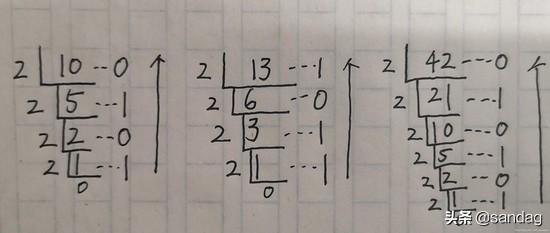 2 10 --- 0
2 5 -- 1
2 2 -- 0
2 1 --- 1
0
2 13 --- 1
2 6 -- 0
2 3 --- 1
2 1 --- 1
0
2 42 --- 0
2 21 --- 1
2 10 --- 0
2 5 --- 1
2 2 -- 0
2 1 --- 1
头条 @sandag